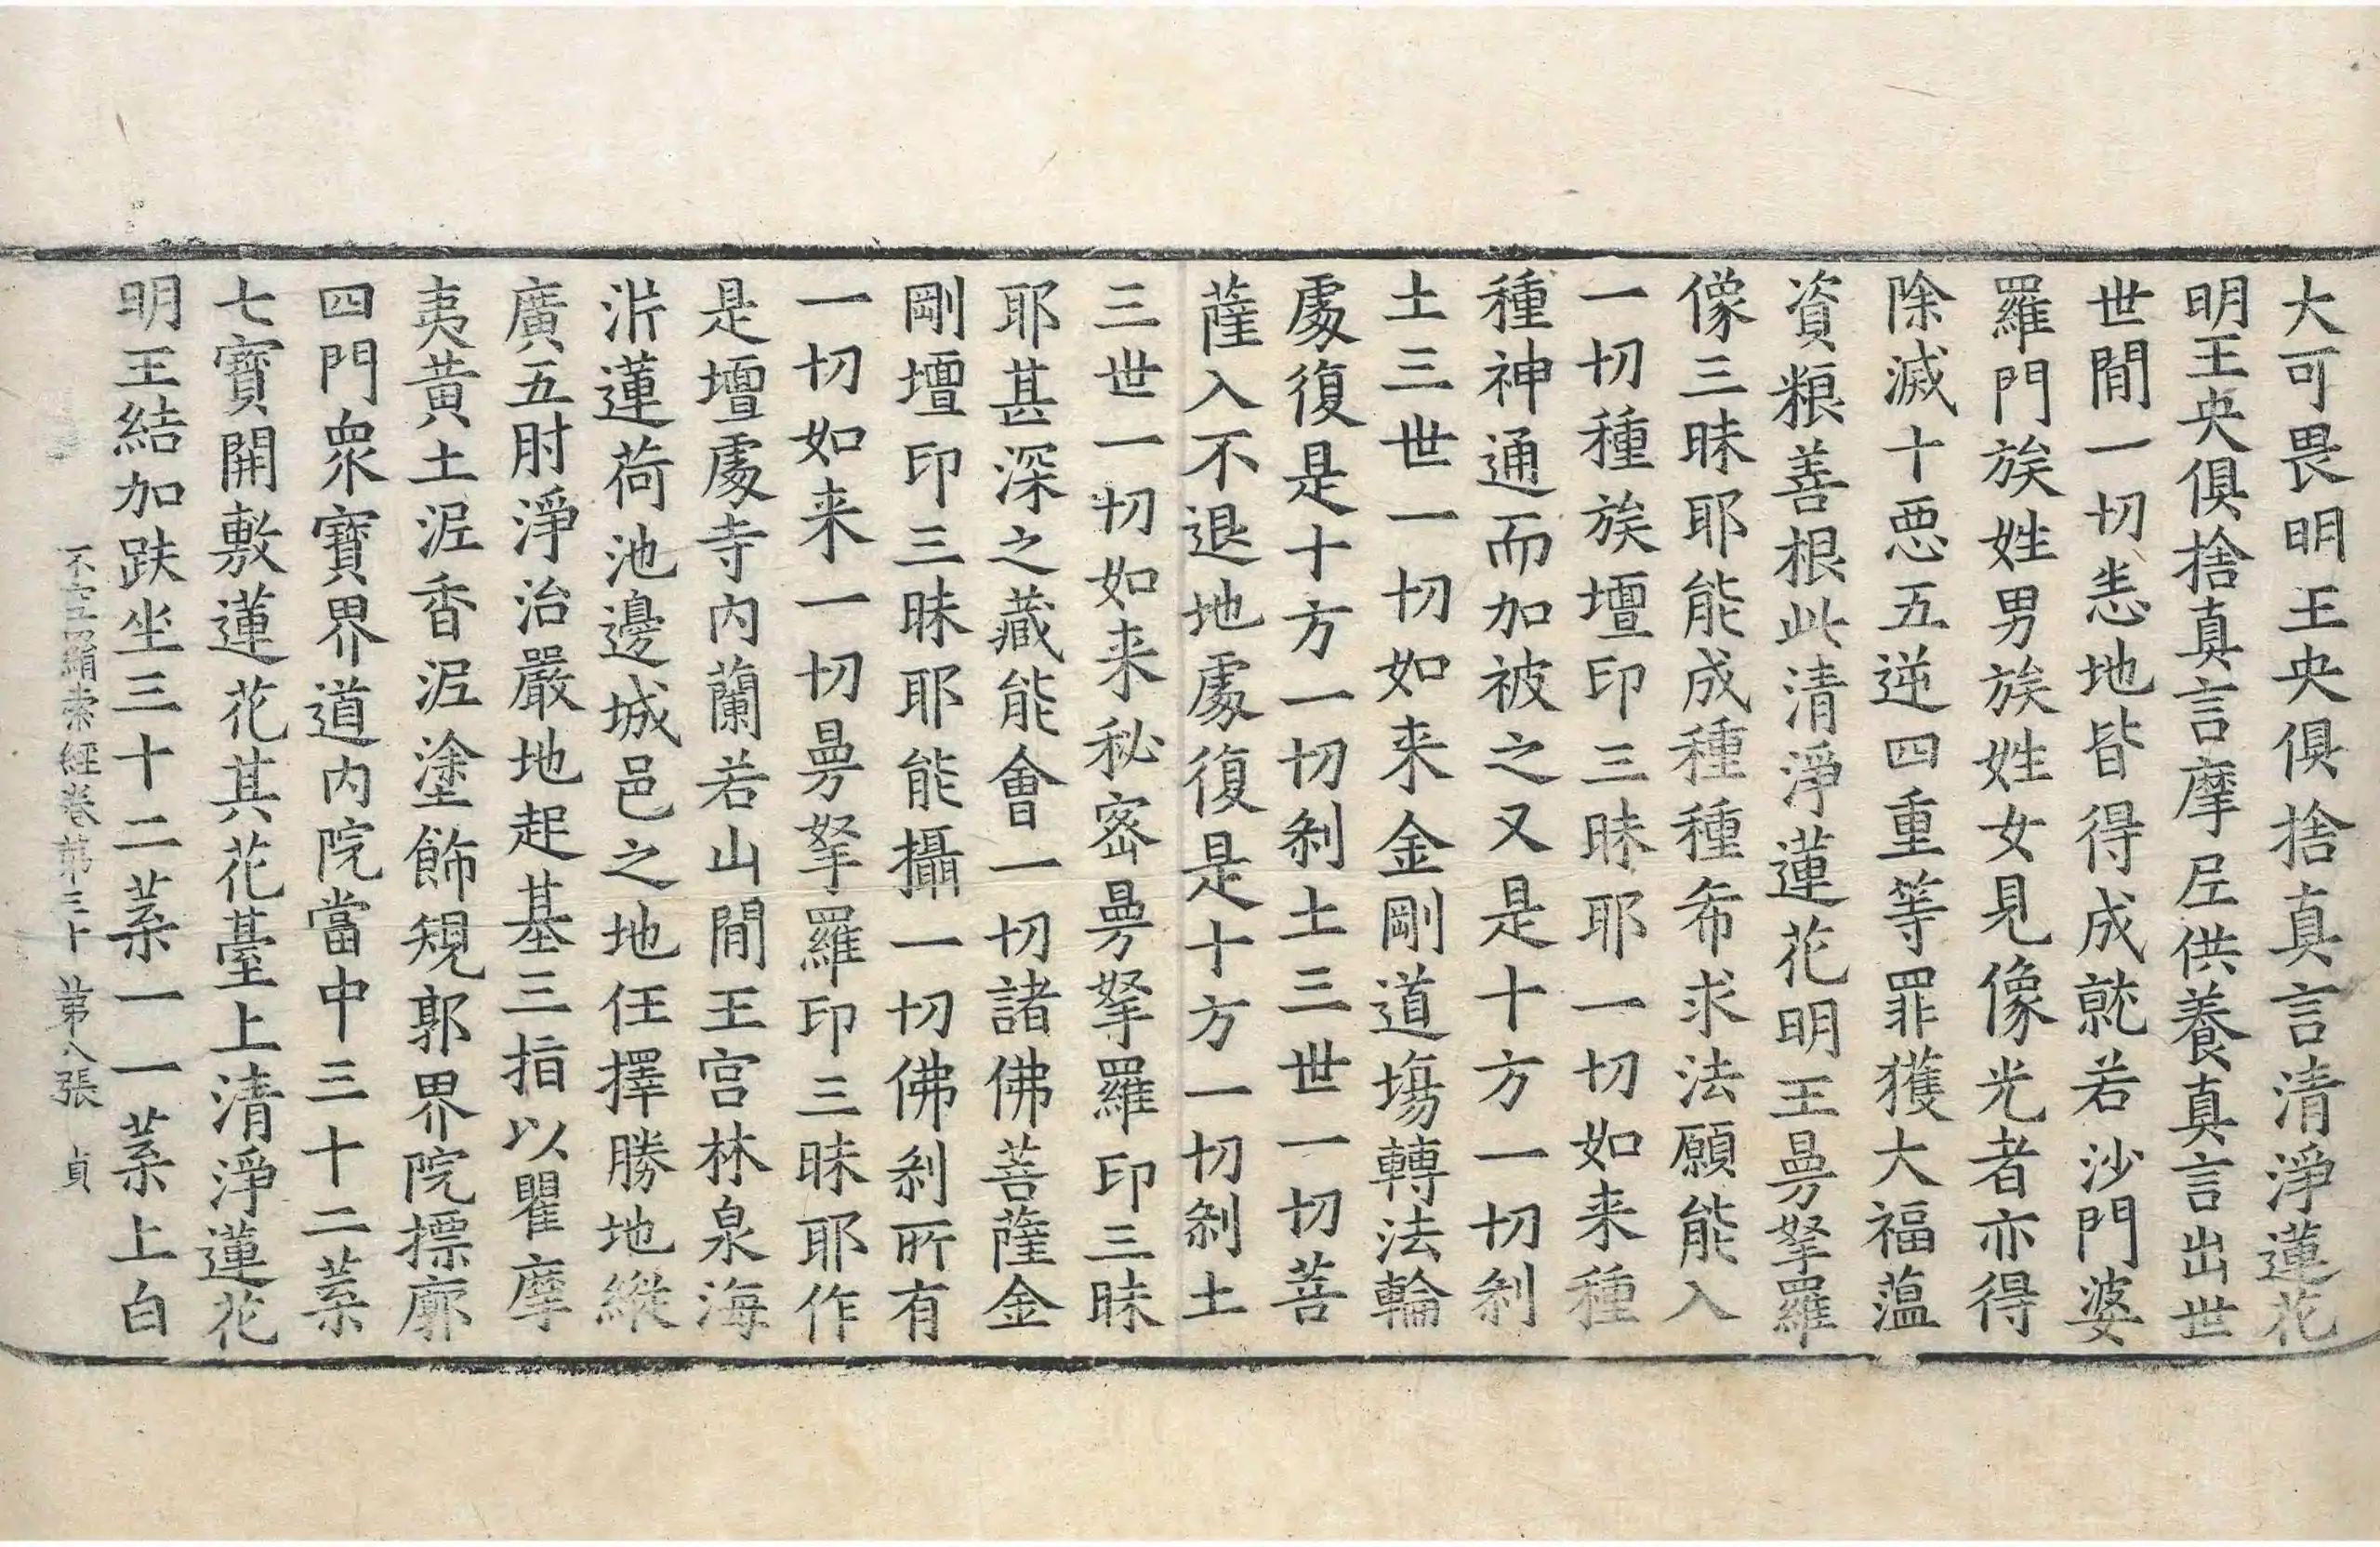 大可畏明王央俱捨真言清淨蓮花
明王央俱捨真言摩𡰱供養真言出世
世閒一切悉地皆得成就若沙門婆
羅門族姓男族姓女見像光者亦得
除滅十惡五逆四重等罪獲大福蕰
資粮善根此清淨蓮花明王曼拏羅
像三昧耶能成種種希求法願能入
一切種族壇印三昧耶一切如来種
種神通而加被之又是十方一切剎
土三世一切如来金剛道場轉法輪
處復是十方一切剎土三世一切菩
薩入不退地處復是十方一切剎土
三世一切如来秘密曼拏羅印三昧
耶甚深之藏能會一切諸佛菩薩金
剛壇印三昧耶能攝一切佛剎所有
一切如来一切曼拏羅印三昧耶作
是壇處寺内蘭若山閒王宫林泉海
泲蓮荷池邊城邑之地任擇勝地縱
廣五肘淨治嚴地起基三指以瞿摩
夷黄土泥香泥塗飾規郭界院摽廓
四門衆寶界道内院當中三十二葉
七寶開敷蓮花其花臺上清淨蓮花
明王結加趺坐三十二葉一一葉上白
不空羂索經卷第三十 第八張 貞